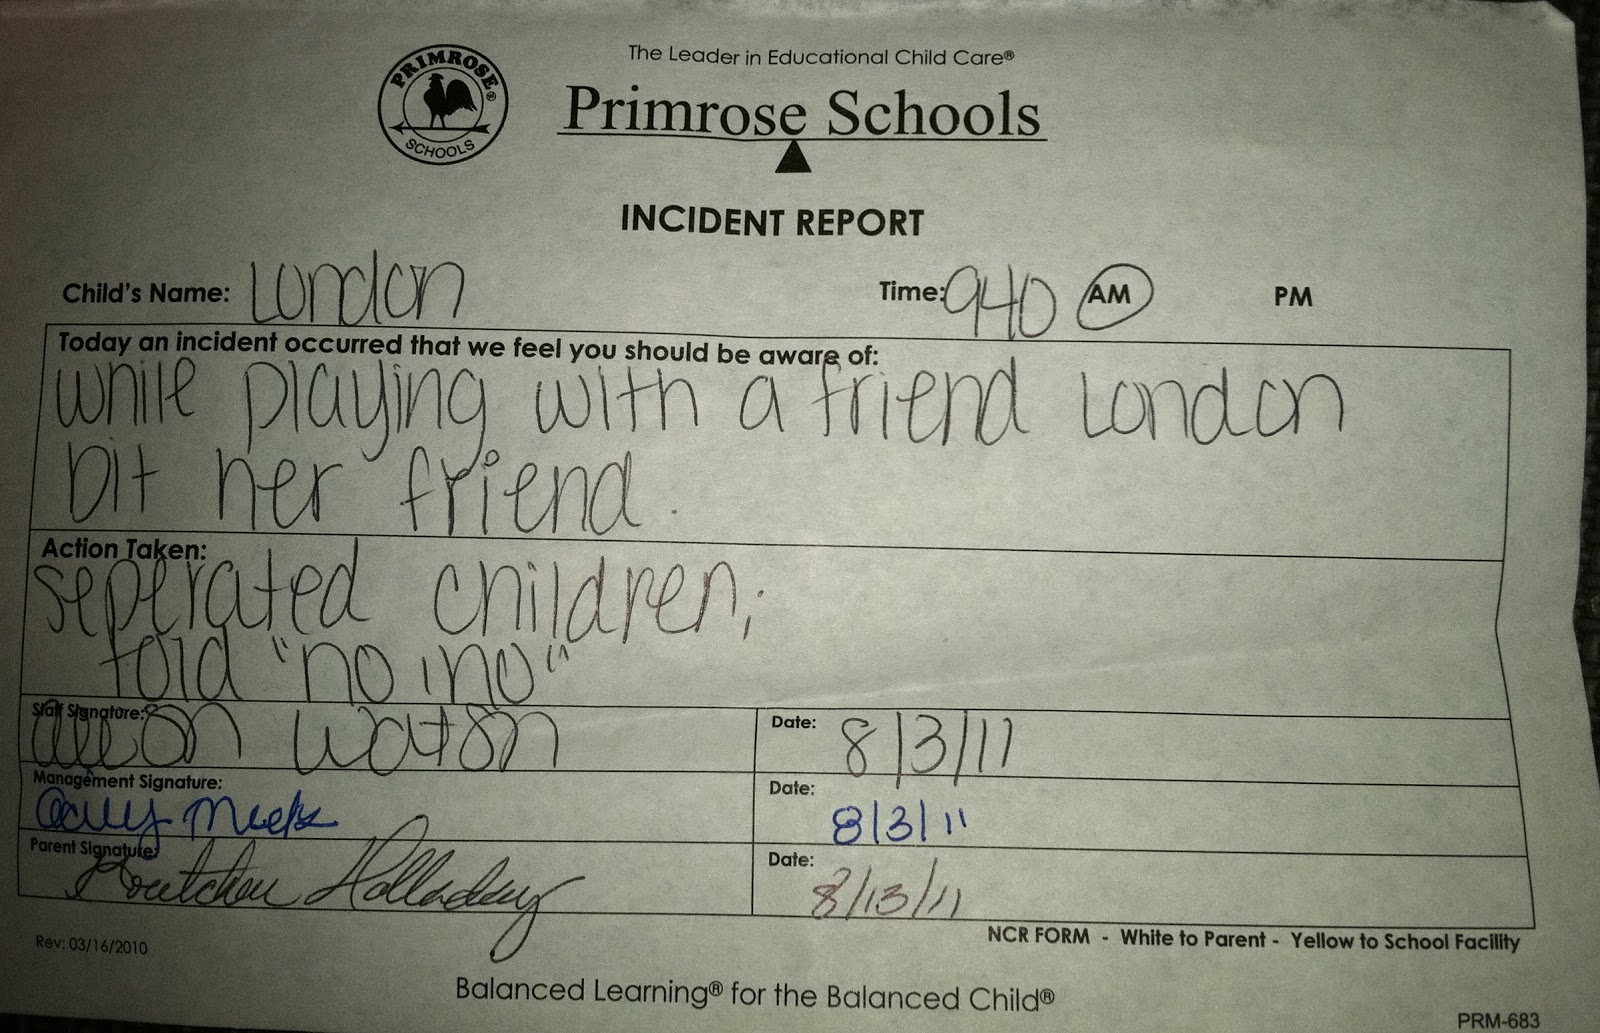 The Leader in Educational Child Care®
PRIMROSE® SCHOOLS
Primrose Schools
INCIDENT REPORT
Child's Name: London Time: 940 AM PM
Today an incident occurred that we feel you should be aware of:
while playing with a friend London
bit her friend.
Action Taken:
seperated children;
told "no no"
Staff Signature: Watson Date: 8/3/11
Management Signature: Meeks Date: 8/3/11
Parent Signature: Holladay Date: 8/13/11
NCR FORM - White to Parent - Yellow to School Facility
Rev: 03/16/2010
Balanced Learning® for the Balanced Child®
PRM-683